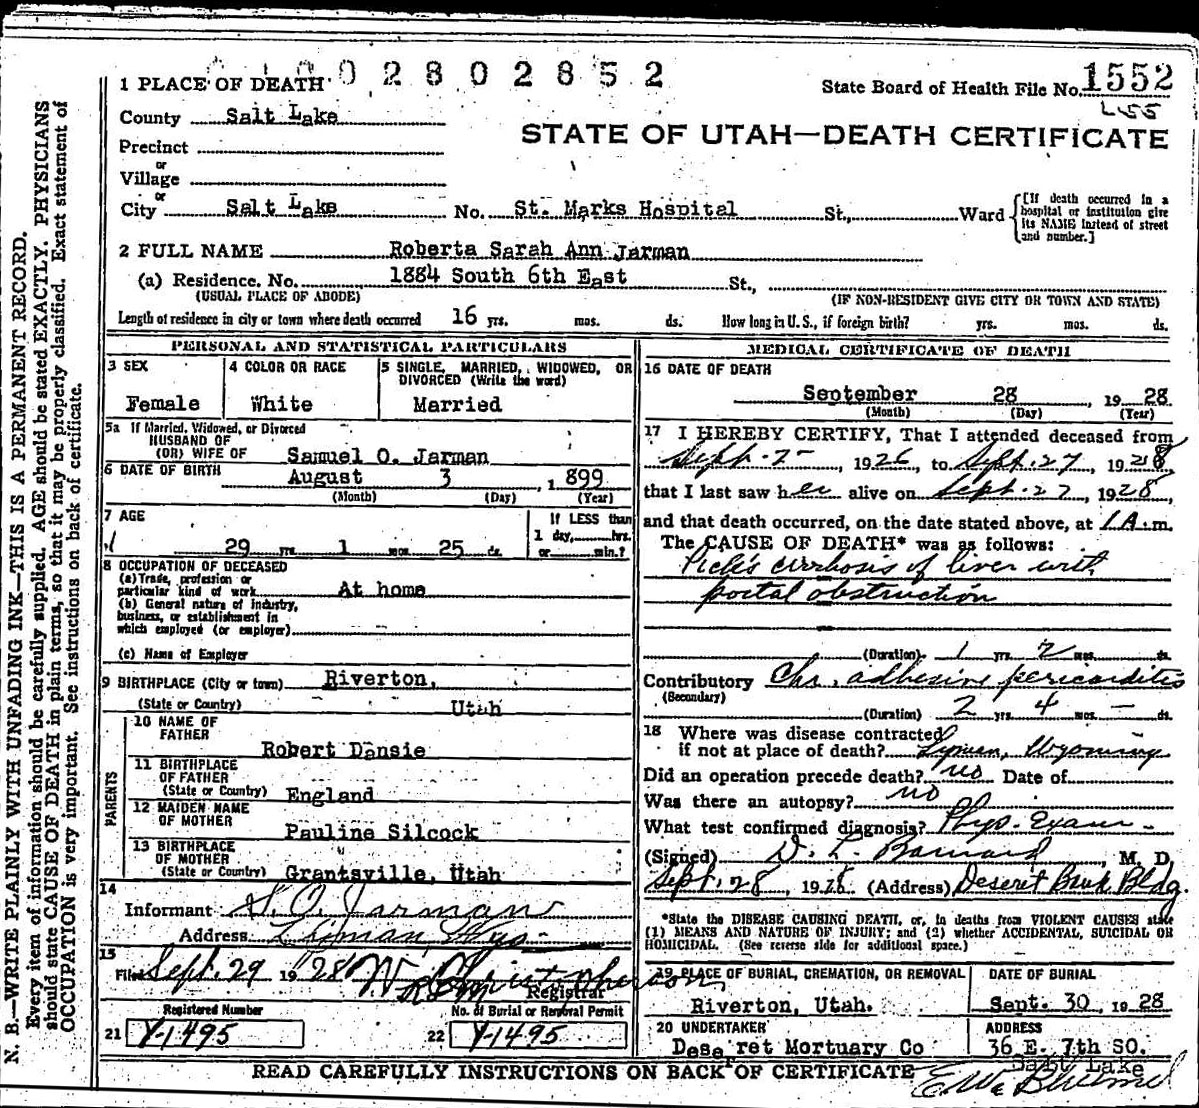 0 2 8 0 2 8 5 2
1 PLACE OF DEATH
State Board of Health File No. 1552
L-55
County Salt Lake
STATE OF UTAH—DEATH CERTIFICATE
Precinct
or
Village
or
City Salt Lake No. St. Marks Hospital St., Ward
[If death occurred in a hospital or institution give its NAME instead of street and number.]
2 FULL NAME Roberta Sarah Ann Jarman
(a) Residence. No. 1884 South 6th East St.,
(USUAL PLACE OF ABODE) (IF NON-RESIDENT GIVE CITY OR TOWN AND STATE)
Length of residence in city or town where death occurred 16 yrs. mos. ds. How long in U. S., if foreign birth? yrs. mos. ds.
PERSONAL AND STATISTICAL PARTICULARS
3 SEX
Female
4 COLOR OR RACE
White
5 SINGLE, MARRIED, WIDOWED, OR
DIVORCED (Write the word)
Married
5a If Married, Widowed, or Divorced
HUSBAND OF
(OR) WIFE OF Samuel O. Jarman
6 DATE OF BIRTH August 3, 1899
(Month) (Day) (Year)
7 AGE
29 yrs 1 mos 25 ds.
If LESS than
1 day, hrs.
or min.?
8 OCCUPATION OF DECEASED
(a) Trade, profession or
particular kind of work At home
(b) General nature of industry,
business, or establishment in
which employed (or employer)
(c) Name of Employer
9 BIRTHPLACE (City or town) Riverton,
(State or Country) Utah
PARENTS
10 NAME OF
FATHER
Robert Dansie
11 BIRTHPLACE
OF FATHER
(State or Country) England
12 MAIDEN NAME
OF MOTHER
Pauline Silcock
13 BIRTHPLACE
OF MOTHER
(State or Country) Grantsville, Utah
14
Informant S. O. Jarman
Address Lyman Wyo-
15
Filed Sept. 29 1928
Registrar
Registered Number
21 Y-1495
No. of Burial or Removal Permit
22 Y-1495
MEDICAL CERTIFICATE OF DEATH
16 DATE OF DEATH
September 28, 1928
(Month) (Day) (Year)
17 I HEREBY CERTIFY, That I attended deceased from
Sept. 25, 1926, to Sept. 27, 1928,
that I last saw her alive on Sept. 27, 1928,
and that death occurred, on the date stated above, at 1 A. m.
The CAUSE OF DEATH* was as follows:
Pick's cirrhosis of liver with
portal obstruction
(Duration) 1 yrs. 2 mos. ds.
Contributory Chr. adhesive pericarditis
(Secondary)
(Duration) 2 yrs. 4 mos. — ds.
18 Where was disease contracted
if not at place of death? Lyman, Wyoming
Did an operation precede death? no Date of
Was there an autopsy? no
What test confirmed diagnosis? Phys. Exam -
(Signed) D. L. Barnard, M. D.
Sept. 28, 1928 (Address) Deseret Bank Bldg.
*State the DISEASE CAUSING DEATH, or, in deaths from VIOLENT CAUSES state
(1) MEANS AND NATURE OF INJURY; and (2) whether ACCIDENTAL, SUICIDAL OR
HOMICIDAL. (See reverse side for additional space.)
19 PLACE OF BURIAL, CREMATION, OR REMOVAL
Riverton, Utah.
DATE OF BURIAL
Sept. 30, 1928
20 UNDERTAKER
Deseret Mortuary Co
ADDRESS
36 E. 7th SO.
Salt Lake
READ CAREFULLY INSTRUCTIONS ON BACK OF CERTIFICATE
N. B.—WRITE PLAINLY WITH UNFADING INK—THIS IS A PERMANENT RECORD.
Every item of information should be carefully supplied. AGE should be stated EXACTLY. PHYSICIANS
should state CAUSE OF DEATH in plain terms, so that it may be properly classified. Exact statement of
OCCUPATION is very important. See instructions on back of certificate.